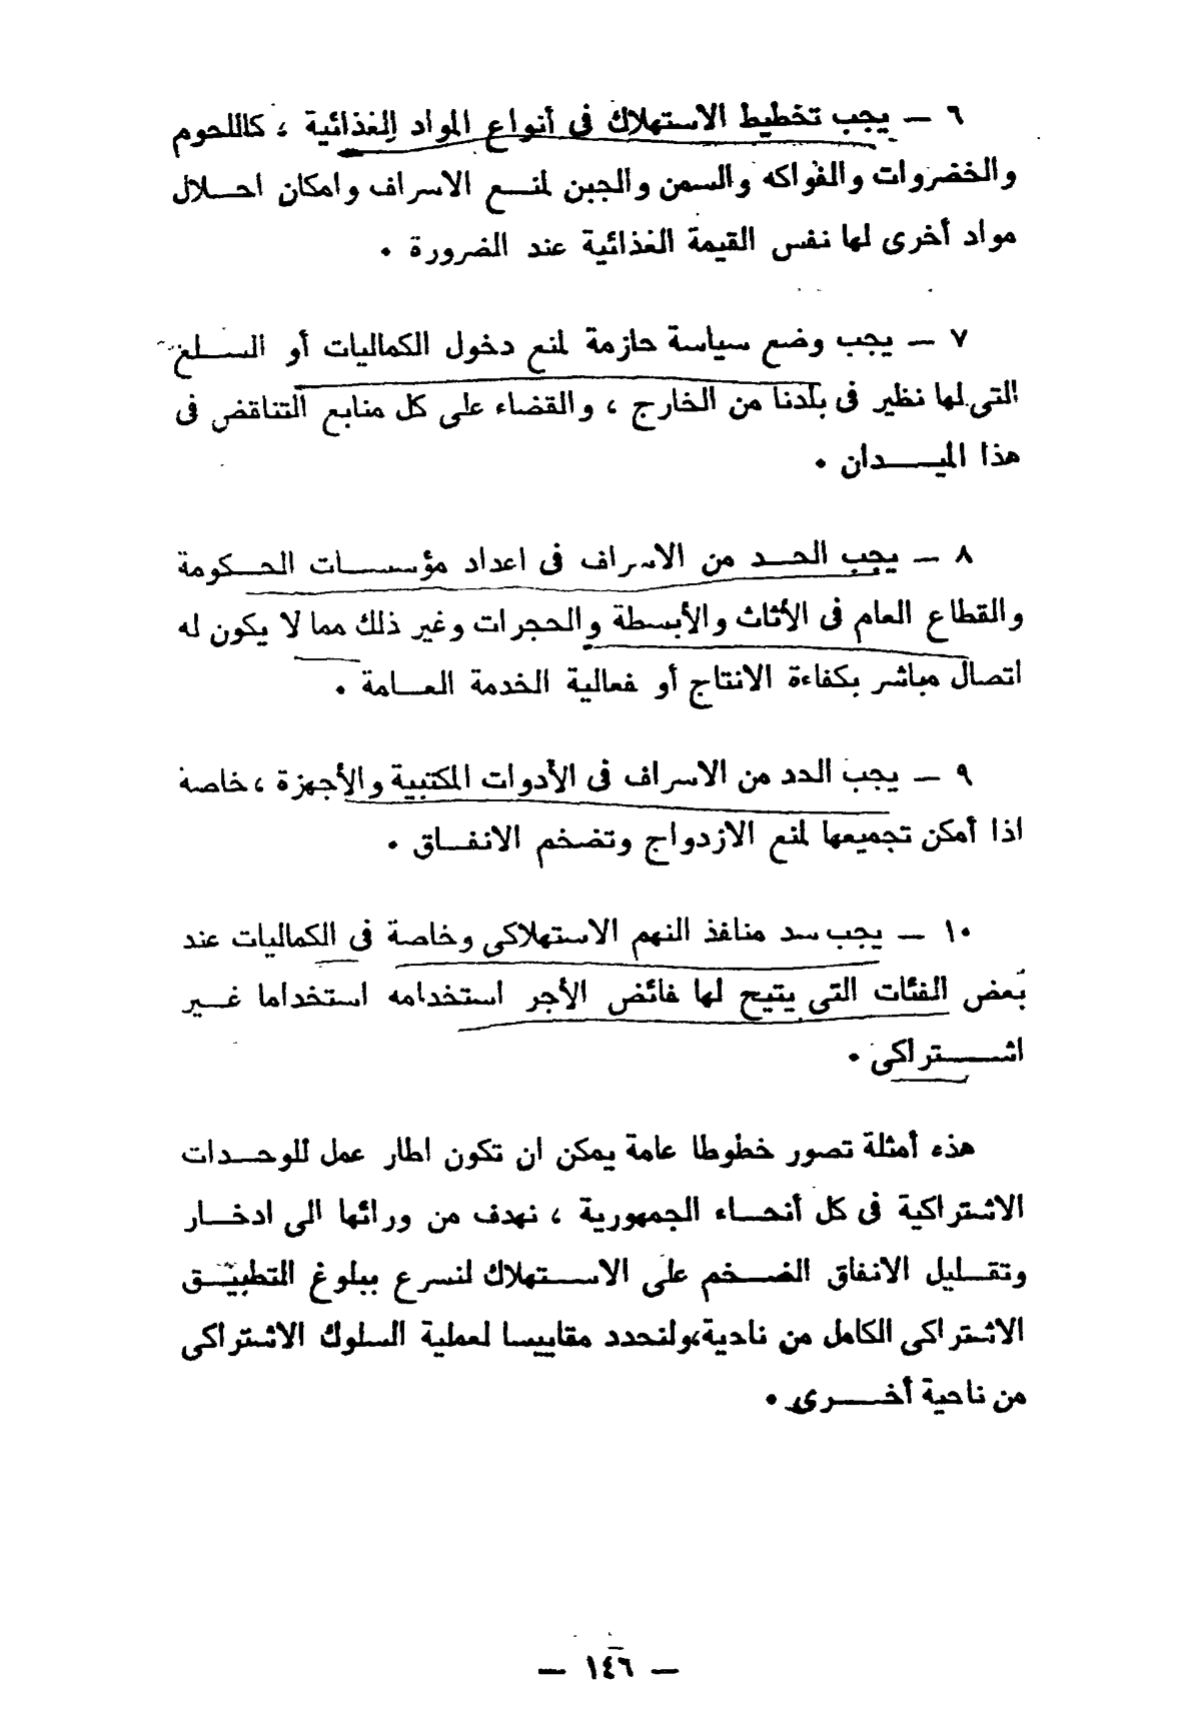 ٦ — يجب تخطيط الاستهلاك فى أنواع المواد الغذائية ، كاللحوم
والخضروات والفواكه والسمن والجبن لمنع الاسراف وامكان احلال
مواد أخرى لها نفس القيمة الغذائية عند الضرورة .
٧ — يجب وضع سياسة حازمة لمنع دخول الكماليات أو السلع
التى لها نظير فى بلدنا من الخارج ، والقضاء على كل منابع التناقض فى
هذا الميدان .
٨ — يجب الحد من الاسراف فى اعداد مؤسسات الحكومة
والقطاع العام فى الأثاث والأبسطة والحجرات وغير ذلك مما لا يكون له
اتصال مباشر بكفاءة الانتاج أو فعالية الخدمة العامة .
٩ — يجب الحد من الاسراف فى الأدوات المكتبية والأجهزة ، خاصة
اذا أمكن تجميعها لمنع الازدواج وتضخم الانفاق .
١٠ — يجب سد منافذ النهم الاستهلاكى وخاصة فى الكماليات عند
بعض الفئات التى يتيح لها فائض الأجر استخدامه استخداما غير
اشتراكى .
هذه أمثلة تصور خطوطا عامة يمكن ان تكون اطار عمل للوحدات
الاشتراكية فى كل أنحاء الجمهورية ، نهدف من ورائها الى ادخار
وتقليل الانفاق الضخم على الاستهلاك لنسرع ببلوغ التطبيق
الاشتراكى الكامل من ناحية،ولنحدد مقاييسا لعملية السلوك الاشتراكى
من ناحية أخرى .
— ١٤٦ —